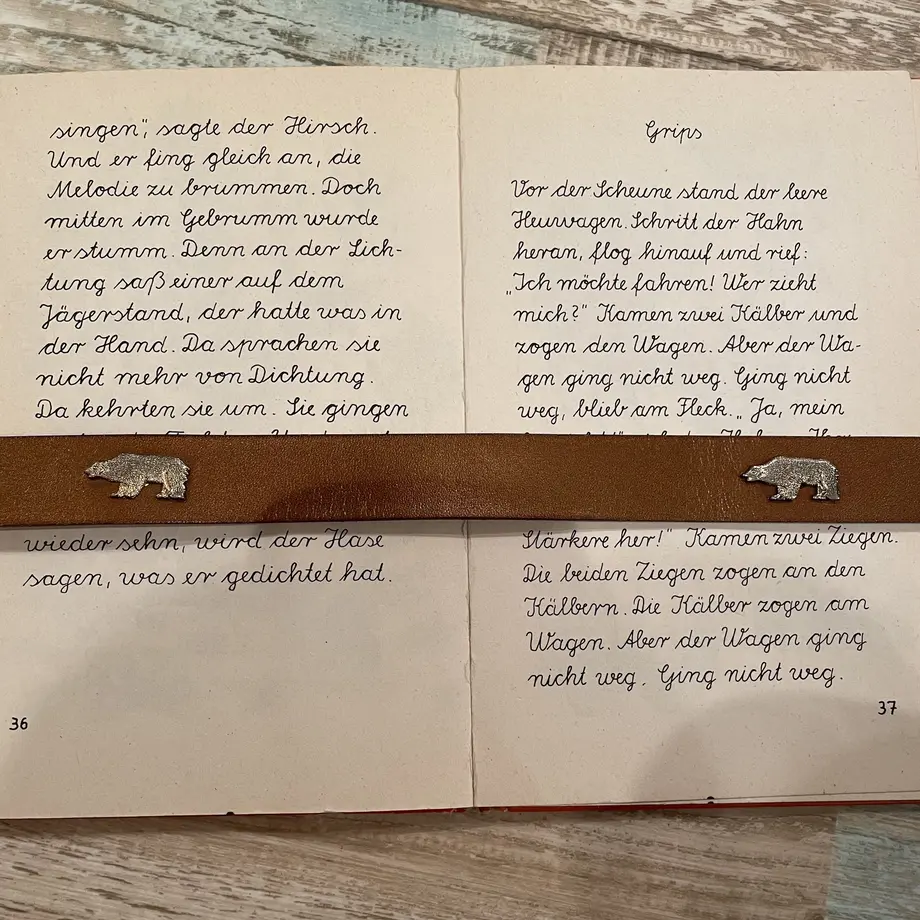 singen", sagte der Hirsch.
Und er fing gleich an, die
Melodie zu brummen. Doch
mitten im Gebrumm wurde
er stumm. Denn an der Lich-
tung saß einer auf dem
Jägerstand, der hatte was in
der Hand. Da sprachen sie
nicht mehr von Dichtung.
Da kehrten sie um. Sie gingen
wieder sehn, wird der Hase
sagen, was er gedichtet hat.
36
Grips
Vor der Scheune stand der leere
Heuwagen. Schritt der Hahn
heran, flog hinauf und rief:
„Ich möchte fahren! Wer zieht
mich?" Kamen zwei Kälber und
zogen den Wagen. Aber der Wa-
gen ging nicht weg. Ging nicht
weg, blieb am Fleck. „Ja, mein
Stärkere her!" Kamen zwei Ziegen.
Die beiden Ziegen zogen an den
Kälbern. Die Kälber zogen am
Wagen. Aber der Wagen ging
nicht weg. Ging nicht weg.
37